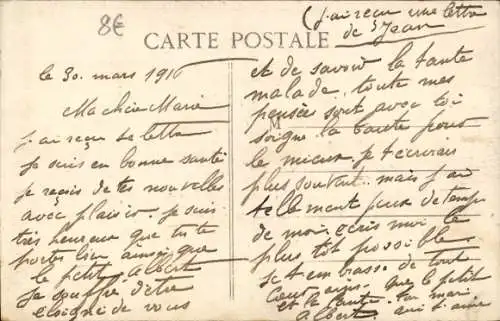 8€
(j'ai reçu une lettre
de St Jean)
CARTE POSTALE
le 30. mars 1916
Ma chère Marie
j'ai reçu ta lettre
Je suis en bonne santé
je reçois de tes nouvelles
avec plaisir. je suis
très heureux que tu te
portes bien ainsi que
le petit Albert
Je souffre d'être
éloigné de vous
et de savoir la tante
malade, toute mes
pensées sont avec toi
soigne la tante pour
le mieux je t'écrirais
plus souvent. mais j'ai
tellement peux de temps
de moi. écris moi le
plus tôt possible
Je t'embrasse de tout
cœur ainsi que le petit
et la tante. ton mari
Albert qui t'aime